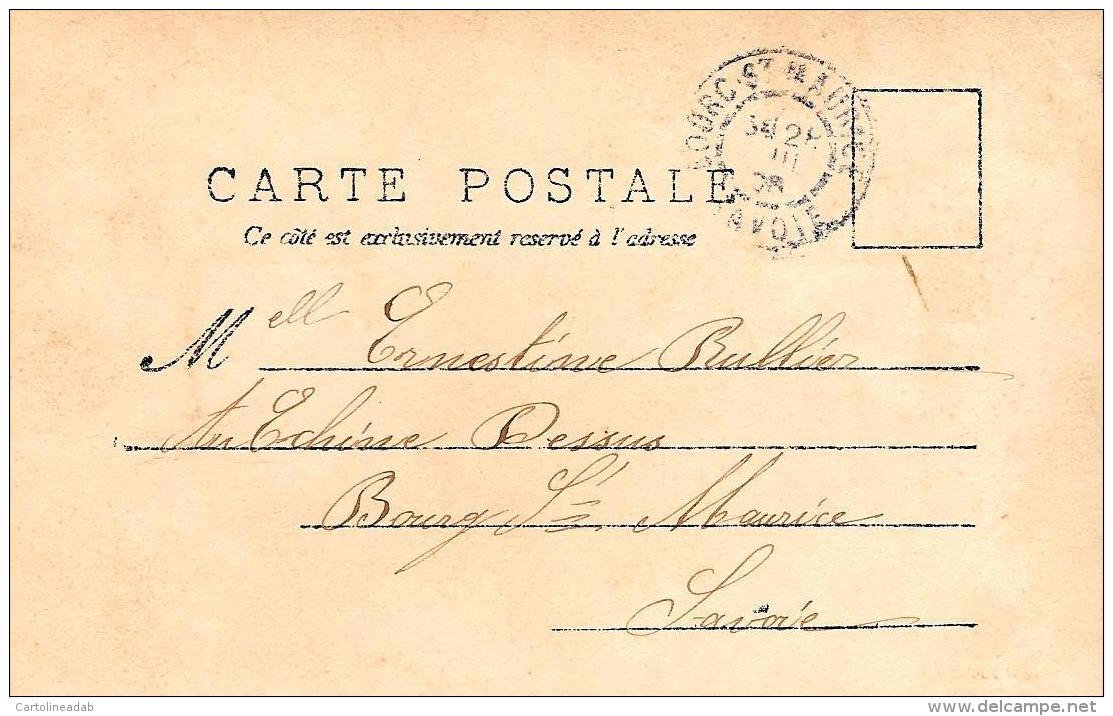 BOURG-ST MAURICE
III
SAVOIE
CARTE POSTALE
Ce côté est exclusivement reservé à l'adresse
Mell Ernestine Rullier
Au Echine Dessus
Bourg St. Maurice
Savoie
Cartolineadab
www.delcampe.net